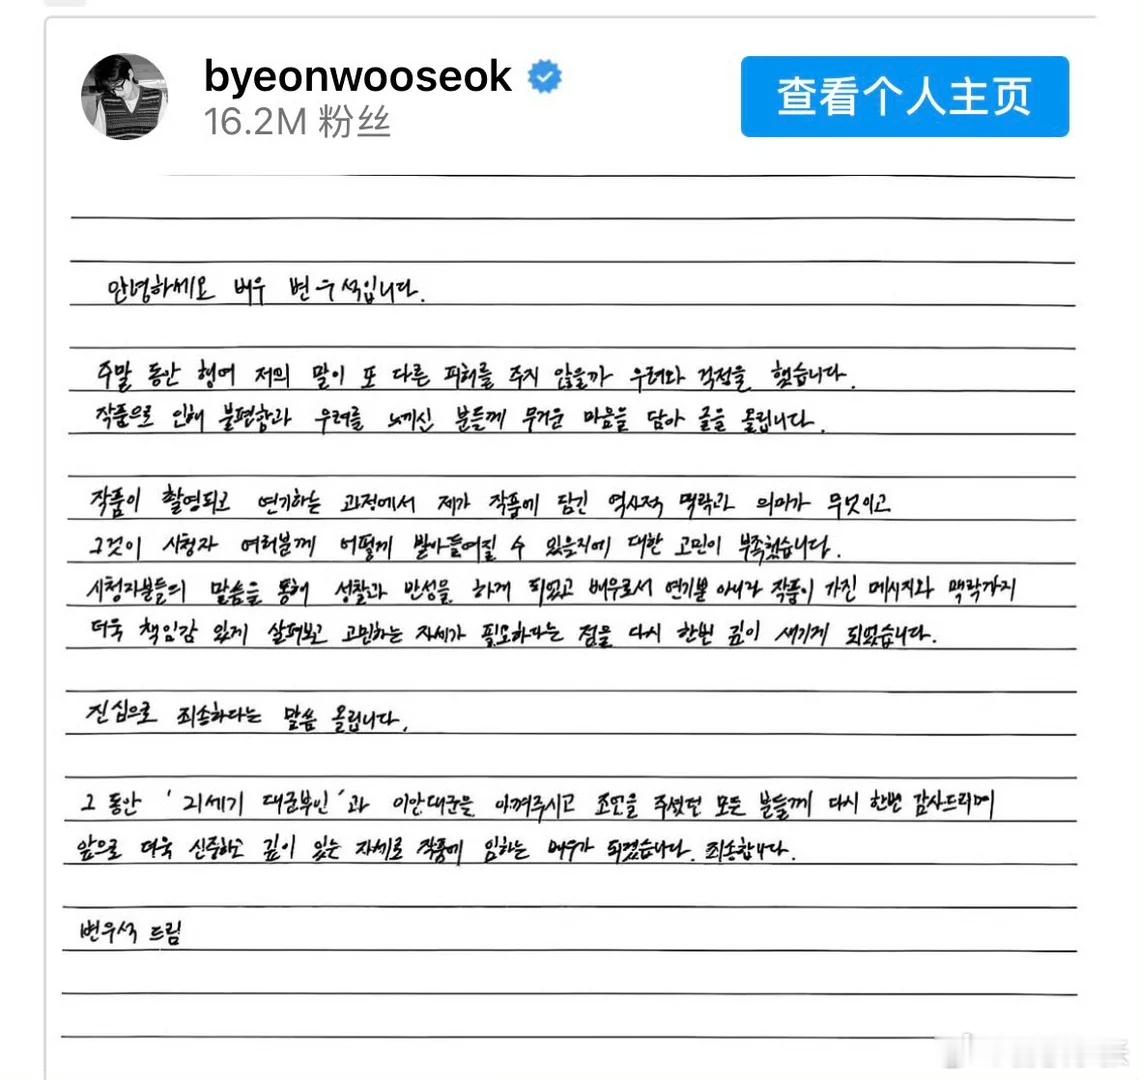 byeonwooseok
16.2M 粉丝
查看个人主页
안녕하세요 배우 변우석입니다.
주말 동안 혹여 저의 말이 또 다른 피해를 주지 않을까 우려와 걱정을 했습니다.
작품으로 인해 불편함과 우려를 느끼신 분들께 무거운 마음을 담아 글을 올립니다.
작품이 촬영되고 연기하는 과정에서 제가 작품에 담긴 역사적 맥락과 의미가 무엇이고
그것이 시청자 여러분께 어떻게 받아들여질 수 있을지에 대한 고민이 부족했습니다.
시청자분들의 말씀을 통해 성찰과 반성을 하게 되었고 배우로서 연기뿐 아니라 작품이 가진 메시지와 맥락까지
더욱 책임감 있게 살펴보고 고민하는 자세가 필요하다는 점을 다시 한번 깊이 새기게 되었습니다.
진심으로 죄송하다는 말씀 올립니다.
그 동안 '21세기 대군부인'과 이안대군을 아껴주시고 조언을 주셨던 모든 분들께 다시 한번 감사드리며
앞으로 더욱 신중하고 깊이 있는 자세로 작품에 임하는 배우가 되겠습니다. 죄송합니다.
변우석 드림